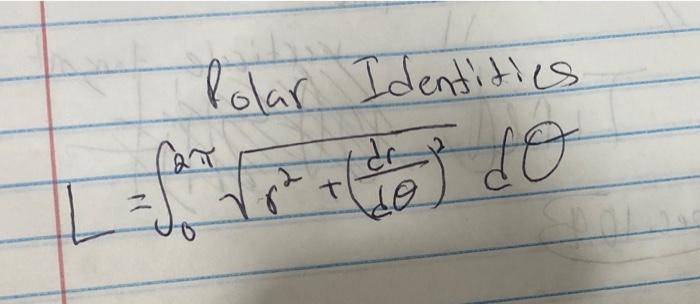 Polar Identities
L = ∫₀^{2π} √(r² + (dr/dθ)²) dθ